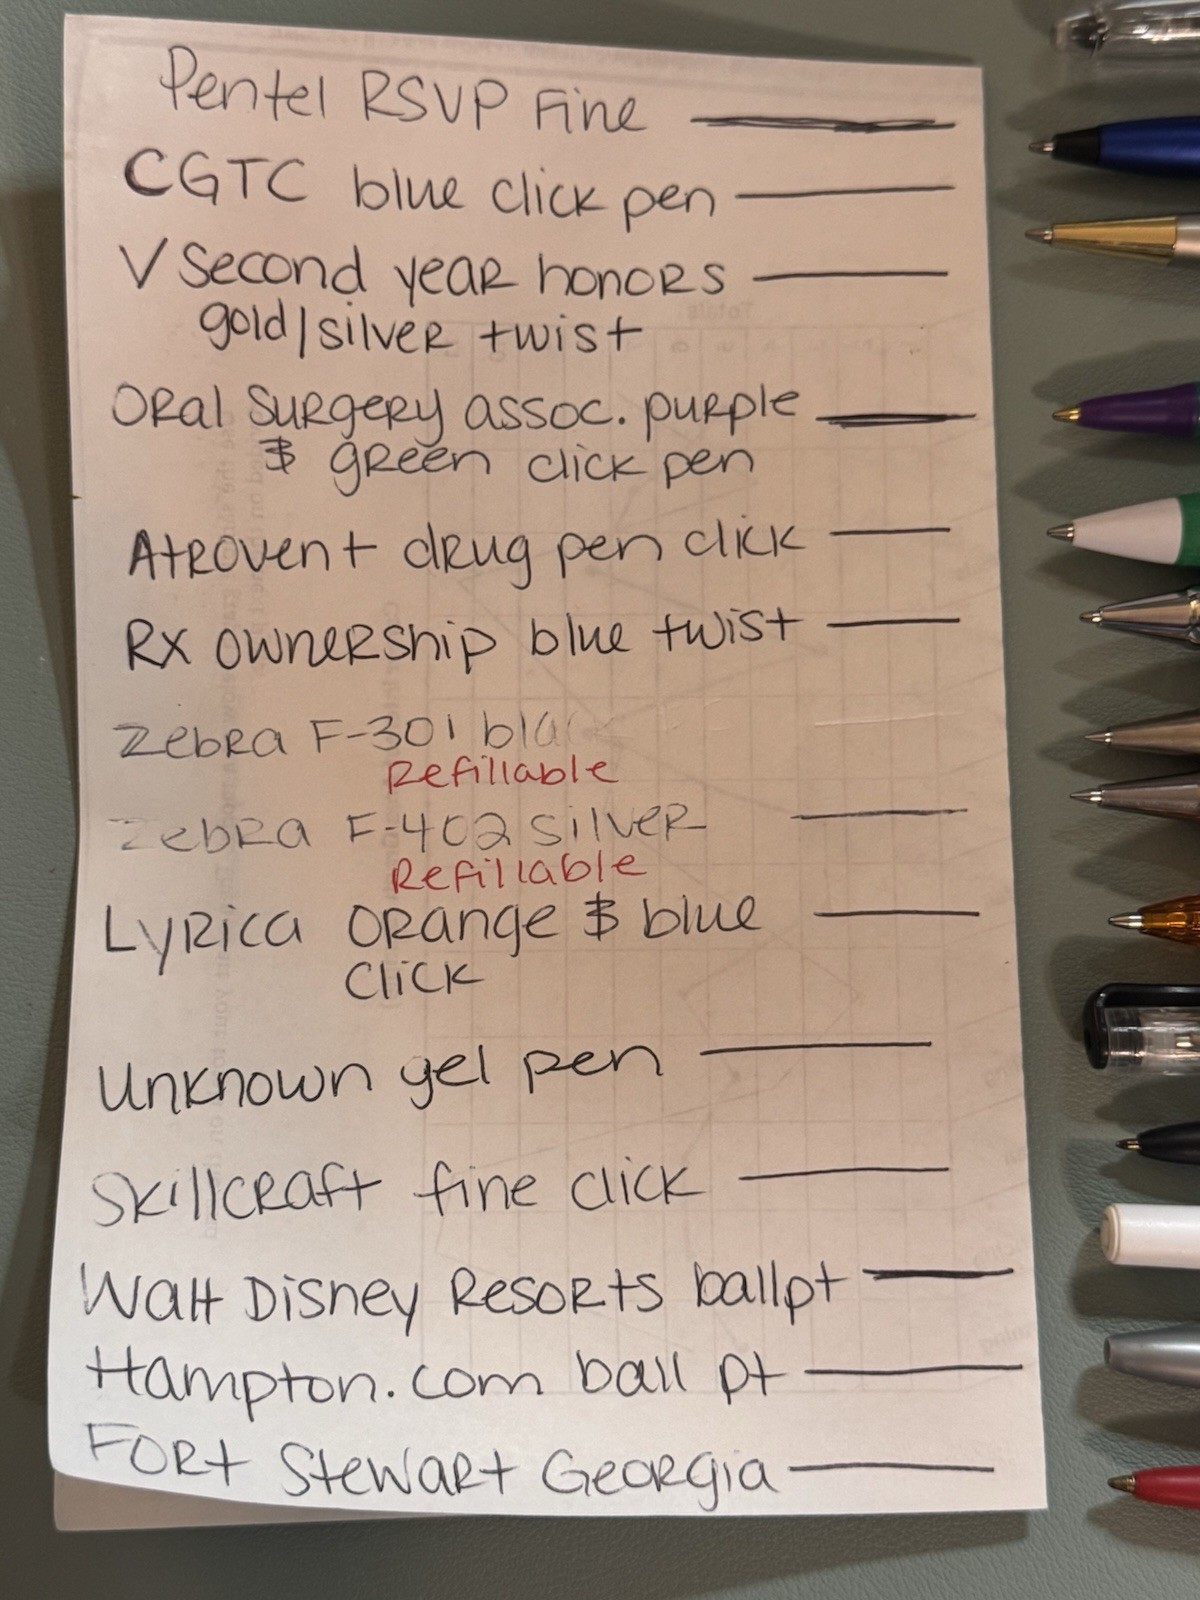 Pentel RSVP Fine
CGTC blue click pen
V Second year honors
gold/silver twist
Oral Surgery assoc. purple
& green click pen
Atrovent drug pen click
Rx ownership blue twist
Zebra F-301 blac
Refillable
Zebra F-402 silver
Refillable
Lyrica orange & blue
click
Unknown gel pen
Skillcraft fine click
Walt Disney Resorts ballpt
Hampton.com ball pt
Fort Stewart Georgia